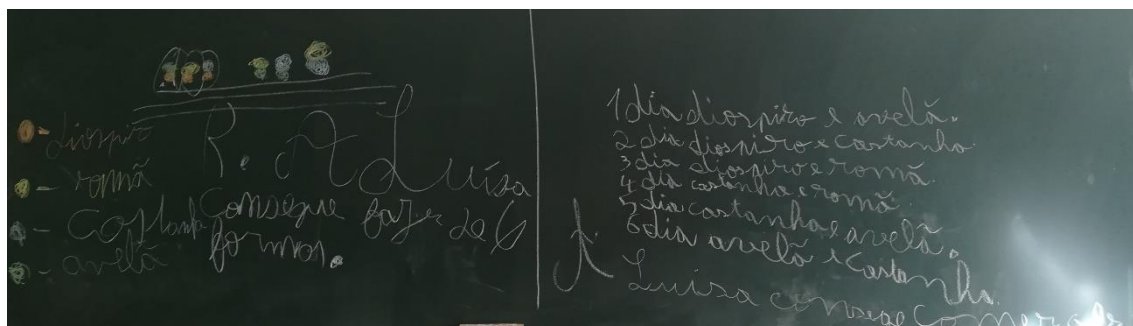 diospiro
romã
castanha
avelã
R. A Luísa
consegue fazer de 6
formas.
1 dia diospiro e avelã.
2 dia diospiro e castanho.
3 dia diospiro e romã.
4 dia castanha e romã.
5 dia castanha e avelã.
6 dia avelã e castanha.
A
Luisa